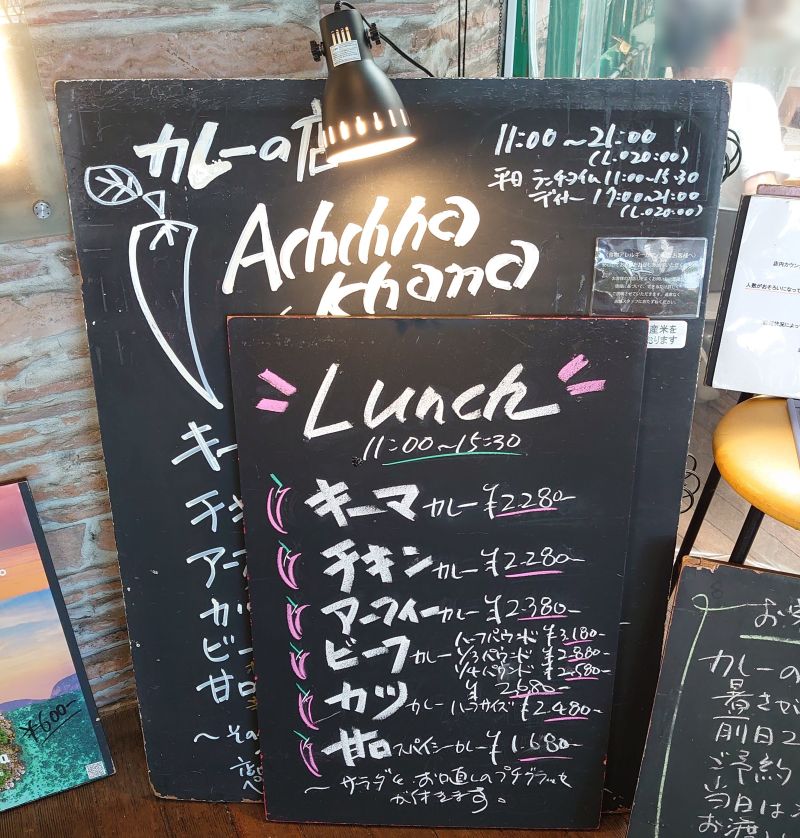 カレーの店
Achchha
khana
11:00～21:00
(L.O20:00)
平日 ランチタイム11:00～15:30
ディナー 17:00～21:00
(L.O20:00)
産米を
おります
Lunch
11:00～15:30
キーマカレー ¥2.280-
チキンカレー ¥2.280-
アーフィーカレー ¥2.380-
ビーフカレー ハーフパウンド ¥3.180-
1/3パウンド ¥2.880-
1/4パウンド ¥2.580-
カツカレー ¥2.680-
ハーフサイズ ¥2.480-
甘口スパイシーカレー ¥1.680-
～サラダと、お口直しのプチグラッセ
が付きます。
キー
チキ
アーフ
カツ
ビー
甘口
～その
店内カウン
人数がおそろいになって
¥600-
カレーの
暑さが
前日2
ご予約
当日は